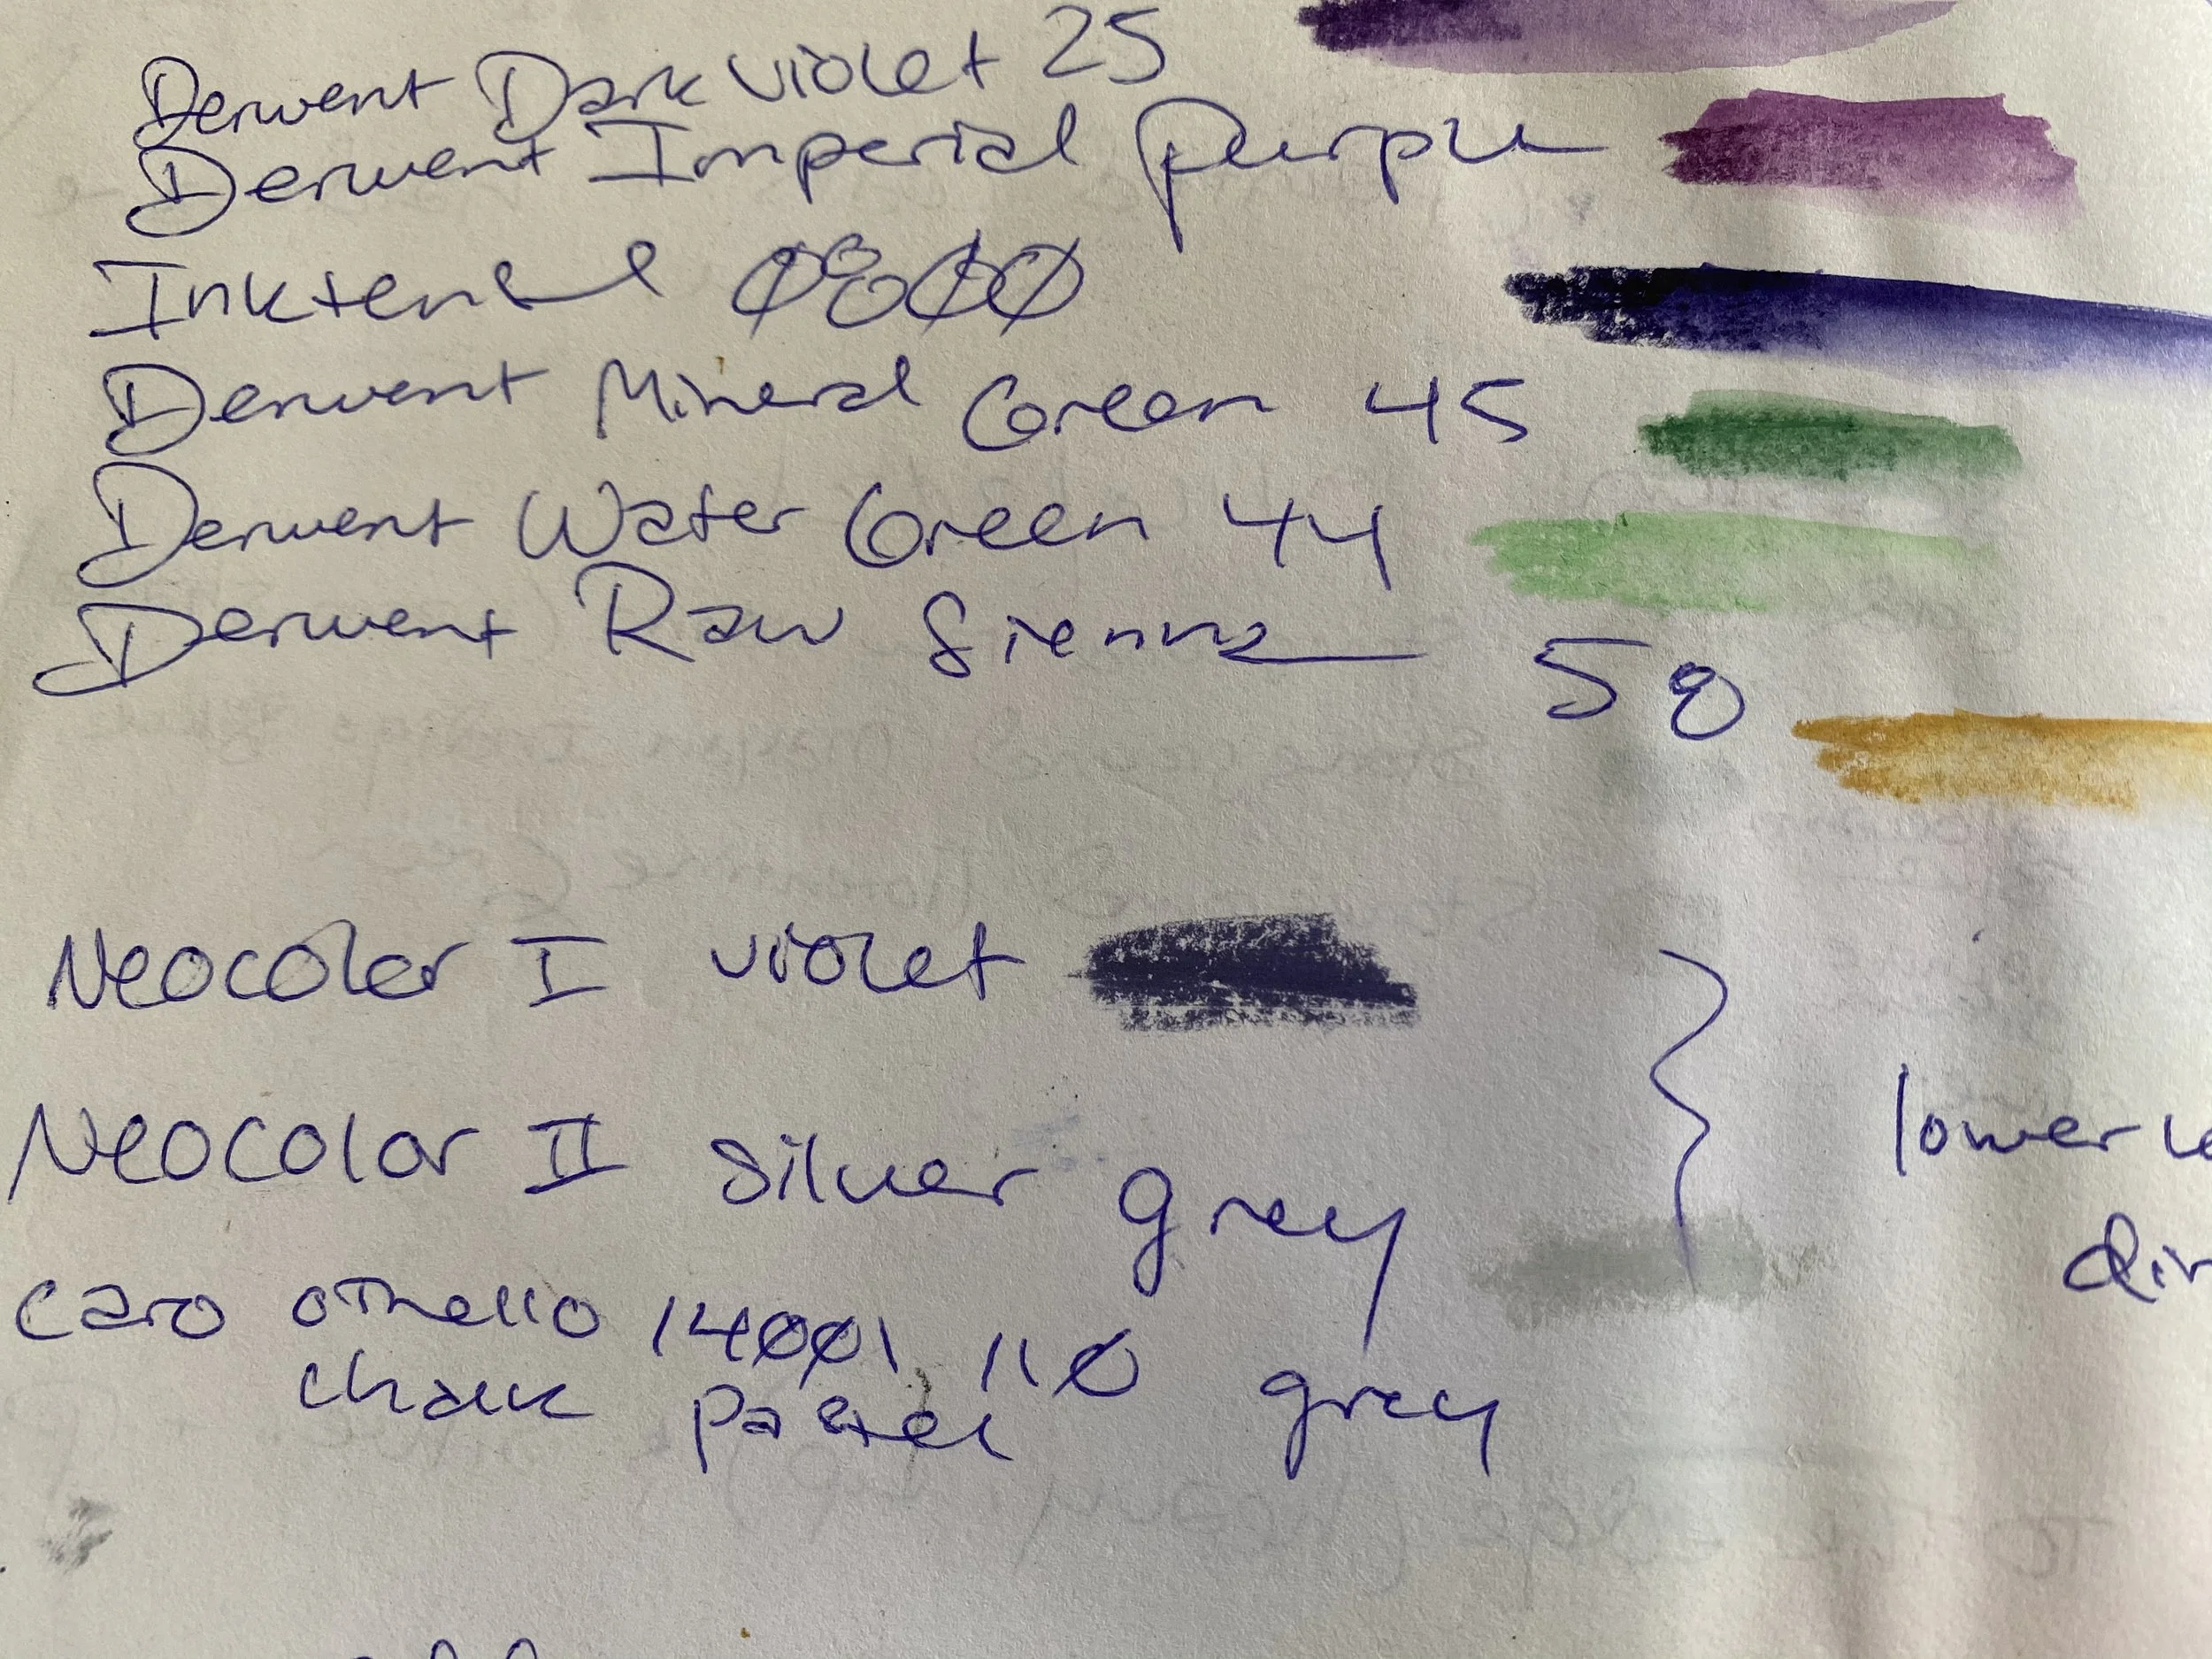 Derwent Dark Violet 25
Derwent Imperial Purple
Inktense 0800
Derwent Mineral Green 45
Derwent Water Green 44
Derwent Raw Sienna 58
Neocolor I violet
Neocolor II Silver grey
lower
Caro othello 1400, 110 grey
chalk pastel